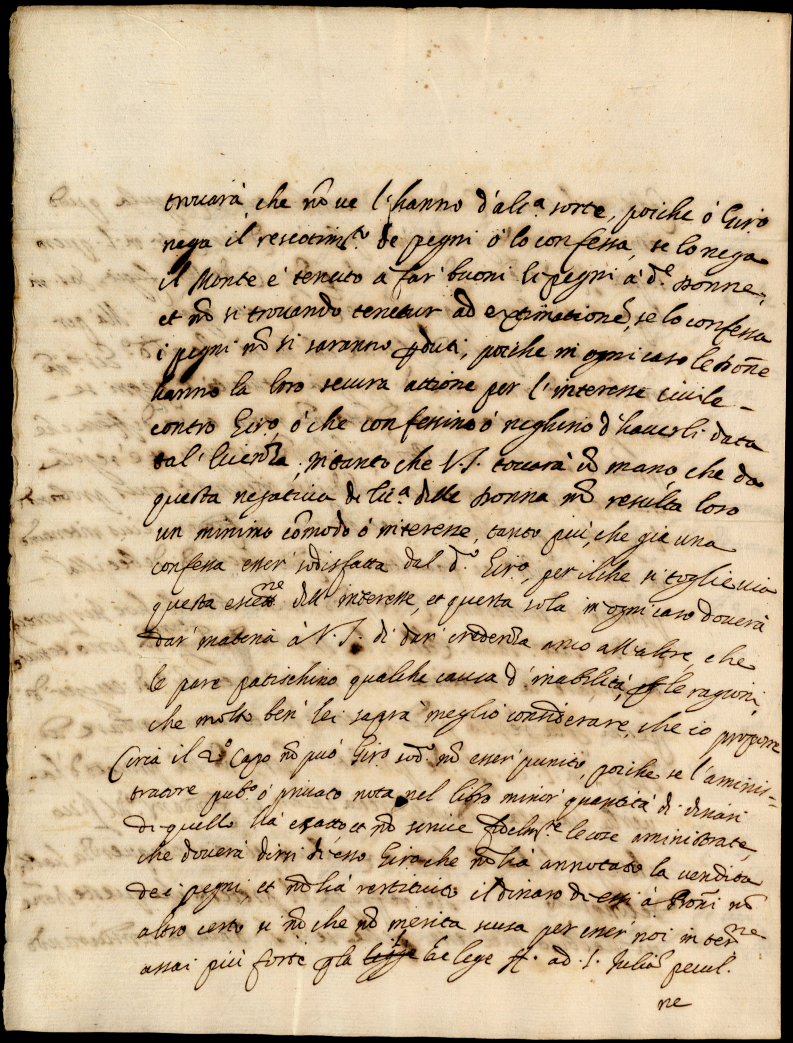 trovarà che nõ ve l'hanno d'alc.ª sorte, poiche ó Giro
nega il rescotim.to de pegni ó lo confessa, se lo nega
il Monte è tenuto à far' buoni li pegni à d.e Donne,
et nõ si trovando tenetur ad extimationẽ, se lo confessa
i pegni nõ si saranno ꝑduti, poiche in ogni caso le Dõne
hanno la loro secura attione per l'interesse civile
contro Giro, ó che confessino ó neghino d'haverli data
tal' licenza, intanto che V.S. toccarà cõ mano, che da
questa negativa di lic.ª delle Donna nõ resulta loro
un minimo cõmodo ó interesse, tanto più, che già una
confessa esser' sodisfatta dal d.º Giro, per il che si toglie via
questa ne dell' interesse, et questa sola in ogni caso doverà
dar' materia à V.S. di dar' credenza anco all'altre, che
le pare patischino qualche causa d'inabilità, ꝑ le ragioni,
che molto ben' lei saprà meglio considerare, che io proporre
Circa il 2º Capo nõ può Giro sod.º nõ esser' punito, poiche se l'aminis-
tratore pub.º ó privato nota nel libro minor' quantità di dinari
di quello hà esatto et nõ scrive le cose aministrate,
che doverà dirsi di esso Giro che nõ hà annotato la vendita
dei pegni, et nõ hà restituito il dinaro di essi à Proñi nõ
altro certo se nõ che nõ merita scusa per esser' noi in ter.ne
assai più forte ꝑ la legge ff. ad. l. Juliã pecul.
ne